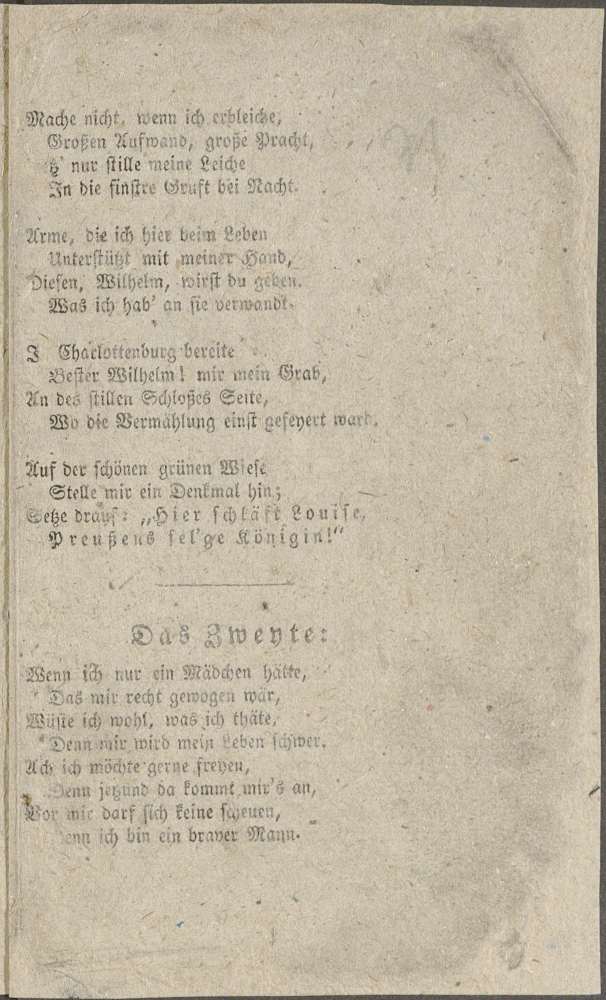 Mache nicht, wenn ich erbleiche,
Großen Aufwand, große Pracht,
nur stille meine Leiche
In die finstre Gruft bei Nacht.
Arme, die ich hier beim Leben
Unterstützt mit meiner Hand,
Diesen, Wilhelm, wirst du geben.
Was ich hab' an sie verwandt.
Charlottenburg bereite
Bester Wilhelm! mir mein Grab,
An des stillen Schloßes Seite,
Wo die Vermählung einst gefeyert ward.
Auf der schönen grünen Wiese
Stelle mir ein Denkmal hin;
Setze drauf: „Hier schläft Louise,
Preußens sel'ge Königin!“
Das Zweyte:
Wenn ich nur ein Mädchen hätte,
Das mir recht gewogen wär,
Wüste ich wohl, was ich thäte,
Denn mir wird mein Leben schwer.
Ach ich möchte gerne freyen,
Denn jetzund da kommt mir's an,
Vor mir darf sich keine scheuen,
ich bin ein braver Mann.